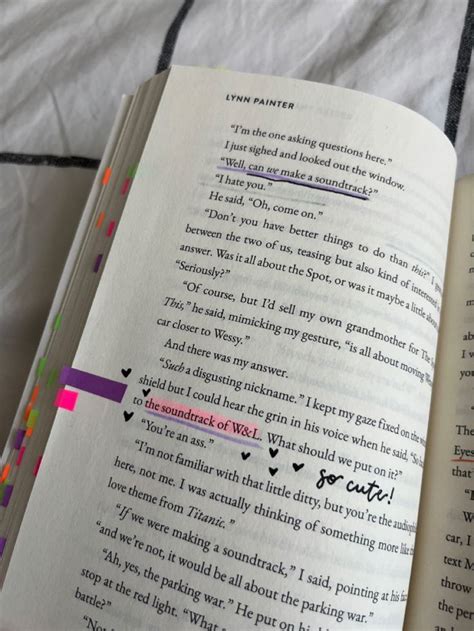 LYNN PAINTER
"I'm the one asking questions here."
I just sighed and looked out the window.
"Well, can we make a soundtrack?"
"I hate you."
He said, "Oh, come on."
"Don't you have better things to do than this?" I
between the two of us, teasing but also kind of interested
answer. Was it all about the Spot, or was it maybe a little
"Seriously?"
"Of course, but I'd sell my own grandmother for The
This," he said, mimicking my gesture, "is all about moving
car closer to Wessy."
And there was my answer.
"Such a disgusting nickname." I kept my gaze fixed on the
shield but I could hear the grin in his voice when he said, "So
to the soundtrack of W&L. What should we put on it?"
"You're an ass."
so cute!
"I'm not familiar with that little ditty, but you're the
here, not me. I was actually thinking of something more like
love theme from Titanic."
"If we were making a soundtrack," I said, pointing at his
"and we're not, it would be all about the parking war."
"Ah, yes, the parking war." He put on his
stop at the red light. "What
battle?"
Eyes
car, I
text M
the per
and